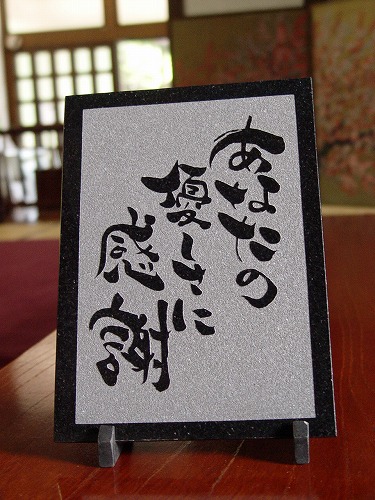 あなたの
優しさに
感謝